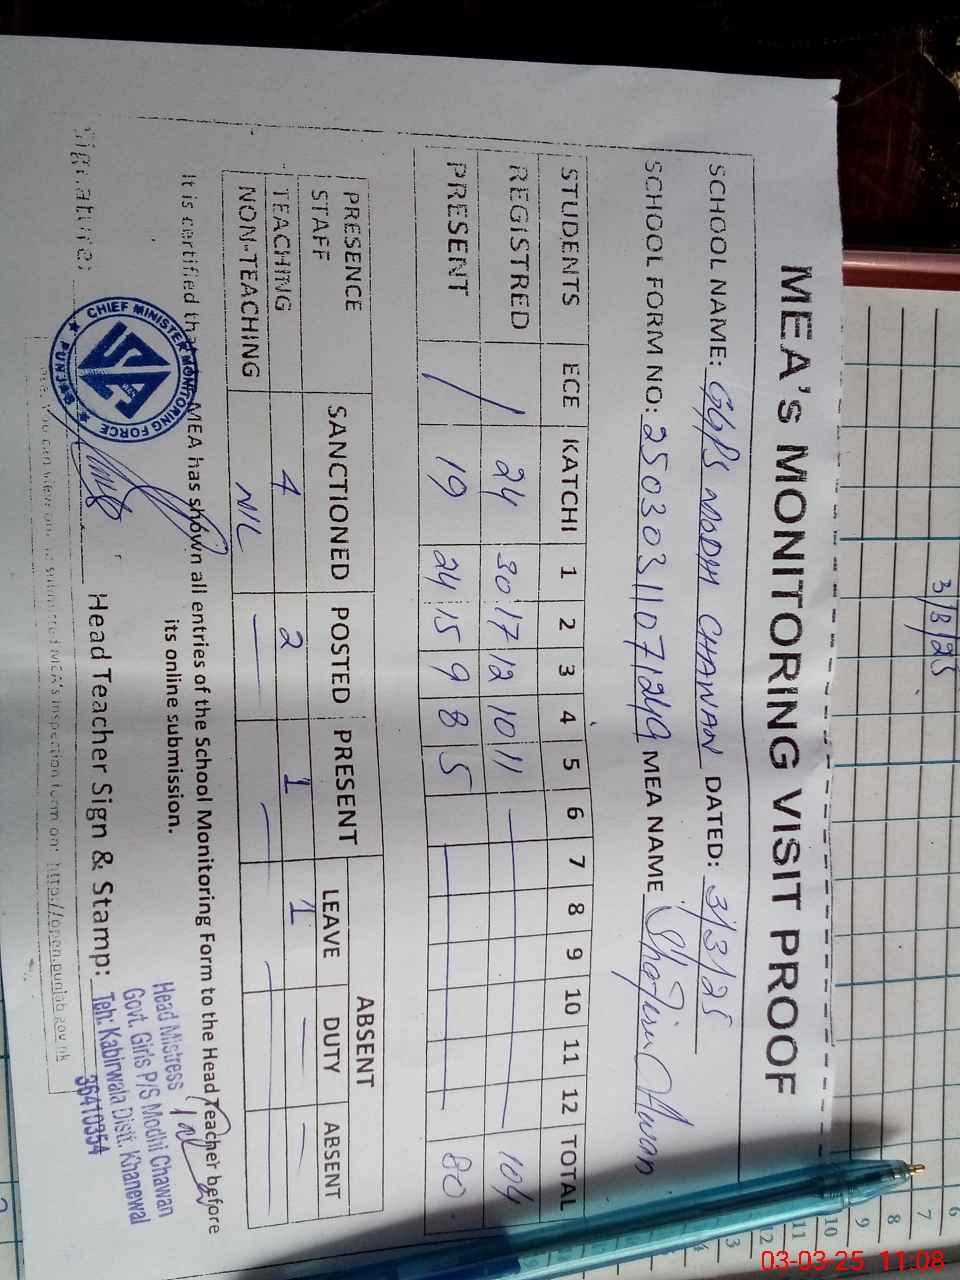 MEA's MONITORING VISIT PROOF
SCHOOL NAME: GGPS MODHI CHAWAN DATED: 3/3/25
SCHOOL FORM NO: 25030311071249 MEA NAME
STUDENTS ECE KATCHI 1 2 3 4 5 6 7 8 9 10 11 12 TOTAL
REGISTRED / 24 30 17 12 10 11 — 104
PRESENT / 19 24 15 9 8 5 — 80
PRESENCE SANCTIONED POSTED PRESENT ABSENT
STAFF LEAVE DUTY ABSENT
TEACHING 4 2 1 1 — —
NON-TEACHING NIL — — —
It is certified that MEA has shown all entries of the School Monitoring Form to the Head Teacher before
its online submission.
CHIEF MINISTER MONITORING FORCE
PUNJAB
Signature: Head Teacher Sign & Stamp:
Head Mistress
Govt. Girls P/S Modhi Chawan
Teh: Kabirwala Distt. Khanewal
36410354
you can view our submitted MEA's inspection form on: http://open.punjab.gov.pk
3/3/25
6
7
8
9
10
11
12
13
03-03-25 11:08